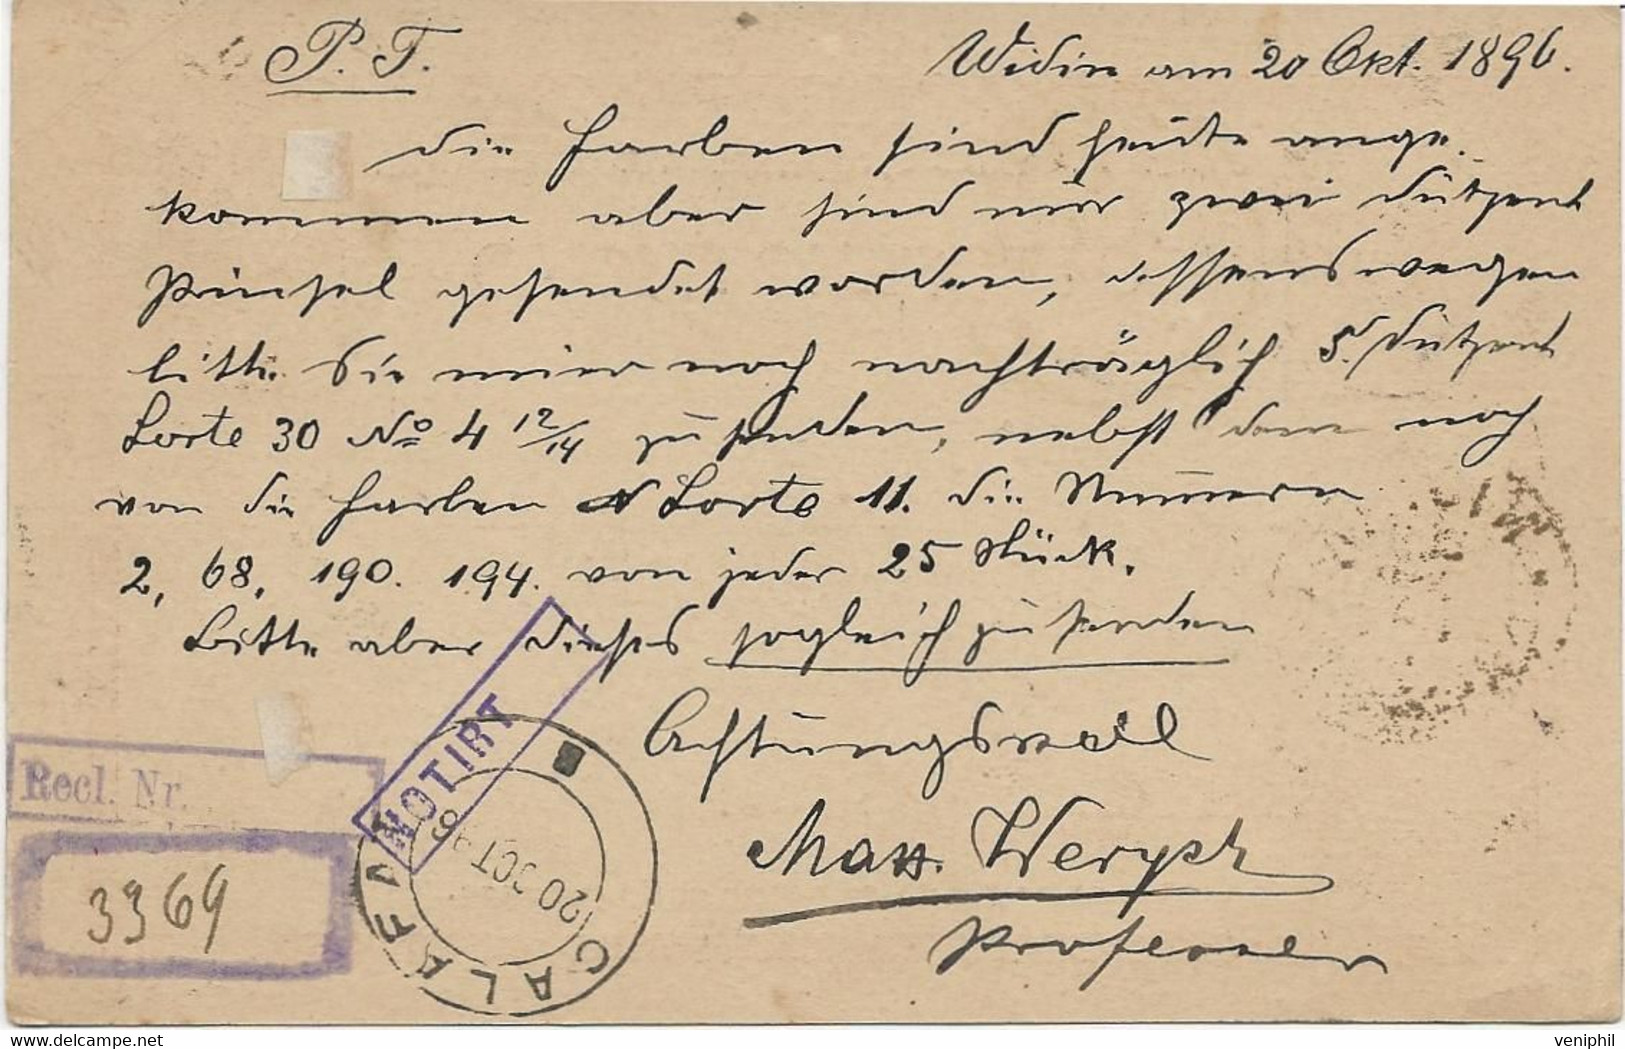 P. T.
Widin am 20 Okt. 1896.
die Farben sind heute ange-
kommen aber sind nur zwei Dutzent
Pinsel gesendet worden, dessenswegen
bitte Sie mier noch nachträglich 5. Dutzent
Sorte 30 No 4 12/14 zu senden, nebst dem noch
von die Farben Sorte 11. die Numern
2, 68, 190. 194. von jeder 25 Stück.
Bitte aber dieses sogleich zu senden
Achtungsvoll
Max.
Professor
NOTIRT
Recl. Nr.
3369
CALAFA
20 OCT 96
delcampe.net
veniphil